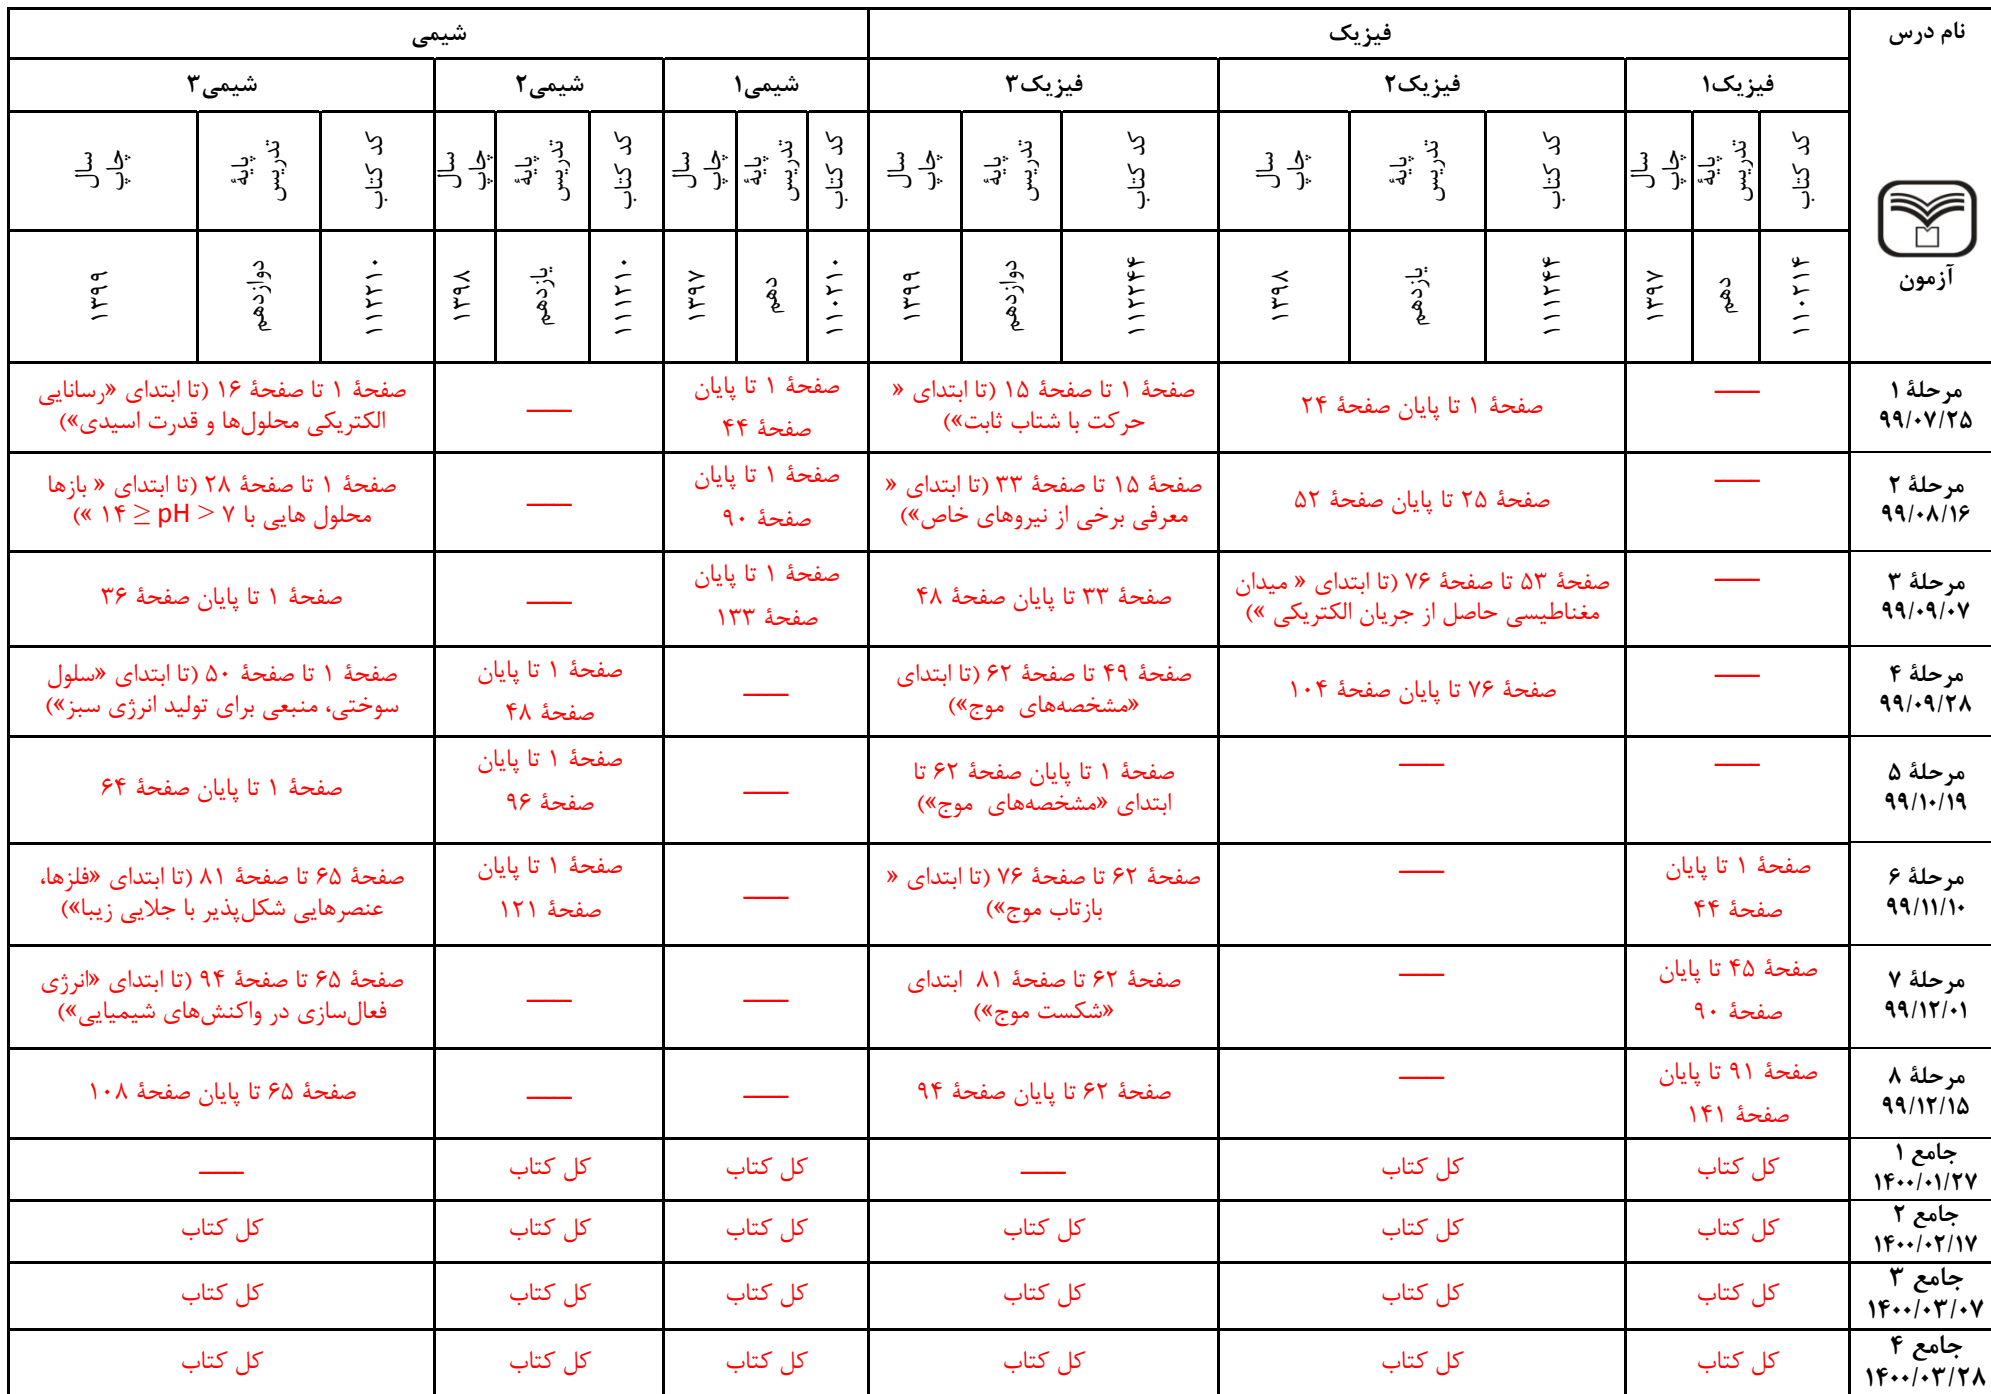 نام درس
فیزیک
شیمی
فیزیک۱
فیزیک۲
فیزیک۳
شیمی۱
شیمی۲
شیمی۳
کد کتاب
پایهٔ
تدریس
سال
چاپ
کد کتاب
پایهٔ
تدریس
سال
چاپ
کد کتاب
پایهٔ
تدریس
سال
چاپ
کد کتاب
پایهٔ
تدریس
سال
چاپ
کد کتاب
پایهٔ
تدریس
سال
چاپ
کد کتاب
پایهٔ
تدریس
سال
چاپ
آزمون
۱۱۰۲۱۴
دهم
۱۳۹۷
۱۱۱۲۴۴
یازدهم
۱۳۹۸
۱۱۲۲۴۴
دوازدهم
۱۳۹۹
۱۱۰۲۱۰
دهم
۱۳۹۷
۱۱۱۲۱۰
یازدهم
۱۳۹۸
۱۱۲۲۱۰
دوازدهم
۱۳۹۹
مرحلهٔ ۱
۹۹/۰۷/۲۵
——
صفحهٔ ۱ تا پایان صفحهٔ ۲۴
صفحهٔ ۱ تا صفحهٔ ۱۵ (تا ابتدای «
حرکت با شتاب ثابت»)
صفحهٔ ۱ تا پایان
صفحهٔ ۴۴
——
صفحهٔ ۱ تا صفحهٔ ۱۶ (تا ابتدای «رسانایی
الکتریکی محلول‌ها و قدرت اسیدی»)
مرحلهٔ ۲
۹۹/۰۸/۱۶
——
صفحهٔ ۲۵ تا پایان صفحهٔ ۵۲
صفحهٔ ۱۵ تا صفحهٔ ۳۳ (تا ابتدای «
معرفی برخی از نیروهای خاص»)
صفحهٔ ۱ تا پایان
صفحهٔ ۹۰
——
صفحهٔ ۱ تا صفحهٔ ۲۸ (تا ابتدای « بازها
محلول هایی با ۷ < pH ≤ ۱۴ »)
مرحلهٔ ۳
۹۹/۰۹/۰۷
——
صفحهٔ ۵۳ تا صفحهٔ ۷۶ (تا ابتدای « میدان
مغناطیسی حاصل از جریان الکتریکی »)
صفحهٔ ۳۳ تا پایان صفحهٔ ۴۸
صفحهٔ ۱ تا پایان
صفحهٔ ۱۳۳
——
صفحهٔ ۱ تا پایان صفحهٔ ۳۶
مرحلهٔ ۴
۹۹/۰۹/۲۸
——
صفحهٔ ۷۶ تا پایان صفحهٔ ۱۰۴
صفحهٔ ۴۹ تا صفحهٔ ۶۲ (تا ابتدای
«مشخصه‌های موج»)
——
صفحهٔ ۱ تا پایان
صفحهٔ ۴۸
صفحهٔ ۱ تا صفحهٔ ۵۰ (تا ابتدای «سلول
سوختی، منبعی برای تولید انرژی سبز»)
مرحلهٔ ۵
۹۹/۱۰/۱۹
——
——
صفحهٔ ۱ تا پایان صفحهٔ ۶۲ تا
ابتدای «مشخصه‌های موج»)
——
صفحهٔ ۱ تا پایان
صفحهٔ ۹۶
صفحهٔ ۱ تا پایان صفحهٔ ۶۴
مرحلهٔ ۶
۹۹/۱۱/۱۰
صفحهٔ ۱ تا پایان
صفحهٔ ۴۴
——
صفحهٔ ۶۲ تا صفحهٔ ۷۶ (تا ابتدای «
بازتاب موج»)
——
صفحهٔ ۱ تا پایان
صفحهٔ ۱۲۱
صفحهٔ ۶۵ تا صفحهٔ ۸۱ (تا ابتدای «فلزها،
عنصرهایی شکل‌پذیر با جلایی زیبا»)
مرحلهٔ ۷
۹۹/۱۲/۰۱
صفحهٔ ۴۵ تا پایان
صفحهٔ ۹۰
——
صفحهٔ ۶۲ تا صفحهٔ ۸۱ ابتدای
«شکست موج»)
——
——
صفحهٔ ۶۵ تا صفحهٔ ۹۴ (تا ابتدای «انرژی
فعال‌سازی در واکنش‌های شیمیایی»)
مرحلهٔ ۸
۹۹/۱۲/۱۵
صفحهٔ ۹۱ تا پایان
صفحهٔ ۱۴۱
——
صفحهٔ ۶۲ تا پایان صفحهٔ ۹۴
——
——
صفحهٔ ۶۵ تا پایان صفحهٔ ۱۰۸
جامع ۱
۱۴۰۰/۰۱/۲۷
کل کتاب
کل کتاب
——
کل کتاب
کل کتاب
——
جامع ۲
۱۴۰۰/۰۲/۱۷
کل کتاب
کل کتاب
کل کتاب
کل کتاب
کل کتاب
کل کتاب
جامع ۳
۱۴۰۰/۰۳/۰۷
کل کتاب
کل کتاب
کل کتاب
کل کتاب
کل کتاب
کل کتاب
جامع ۴
۱۴۰۰/۰۳/۲۸
کل کتاب
کل کتاب
کل کتاب
کل کتاب
کل کتاب
کل کتاب